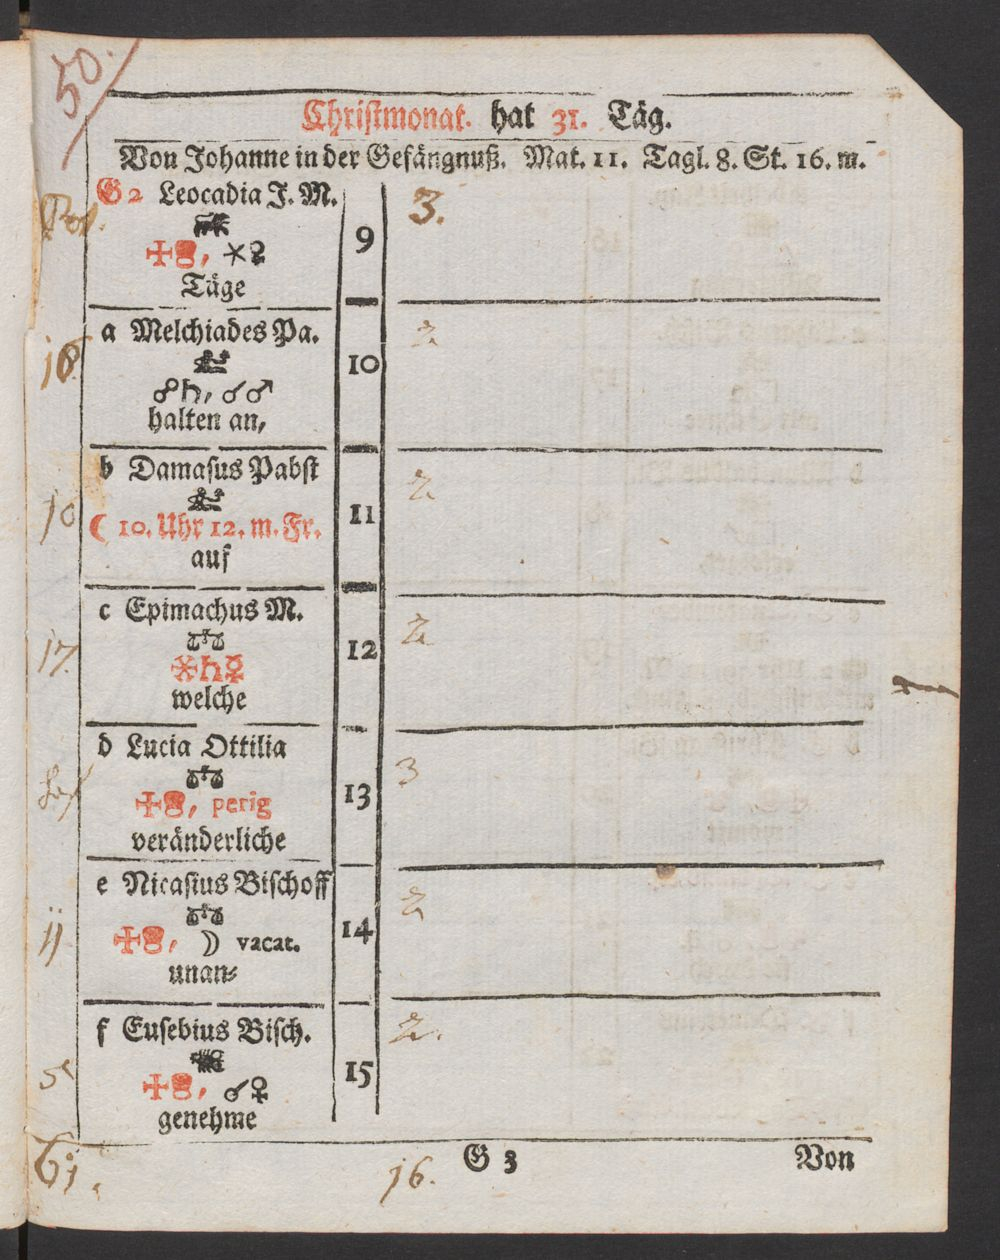 50.
Christmonat. hat 31. Täg.
Von Johanne in der Gefängnuß. Mat. 11. Tagl. 8. St. 16. m.
G 2 Leocadia J. M.
9
3.
☩, ⚹☿
Täge
a Melchiades Pa.
10
2.
☍♄, ☌♂
halten an,
b Damasus Pabst
10
11
2.
☾ 10. Uhr 12. m. Fr.
auf
c Epimachus M.
17.
12
2.
♄☿
welche
d Lucia Ottilia
13
3
☩, perig
veränderliche
e Nicasius Bischoff
ij
14
2
☩, ☽ vacat.
unan⸗
f Eusebius Bisch.
15
2.
☩, ☌♀
genehme
G 3
Von
16.